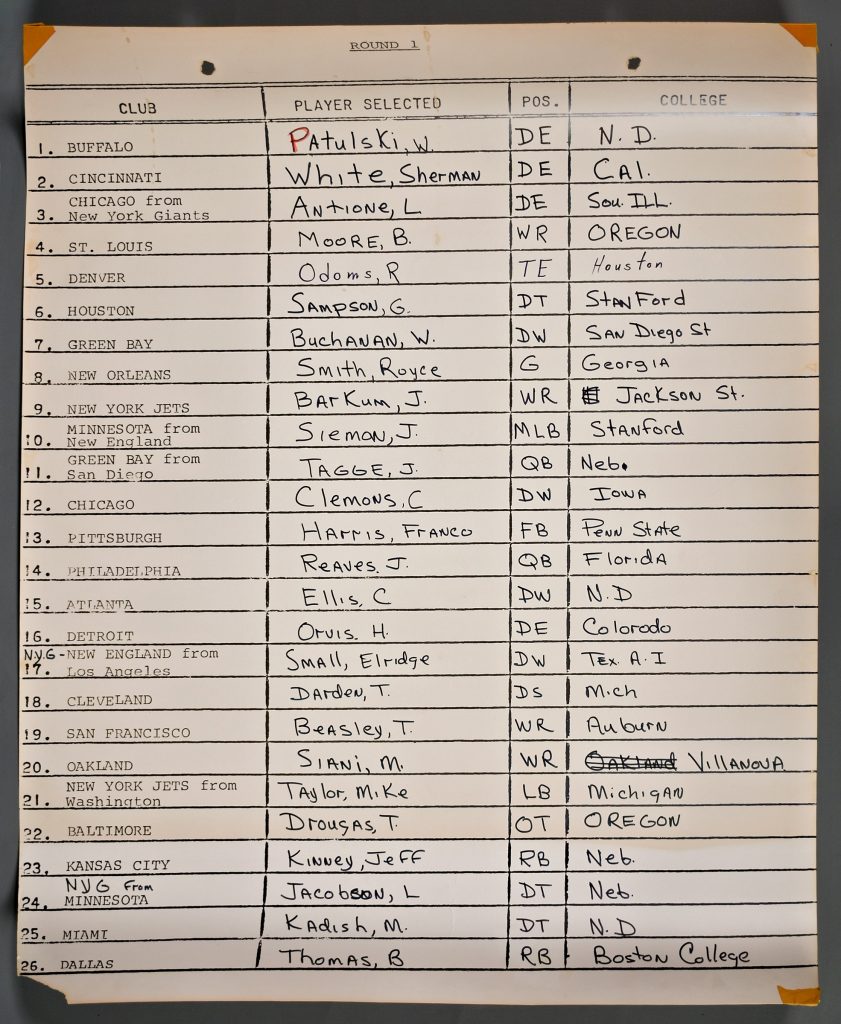 ROUND 1
CLUB PLAYER SELECTED POS. COLLEGE
1. BUFFALO Patulski, W. DE N.D.
2. CINCINNATI White, Sherman DE CAl.
3. CHICAGO from New York Giants Antione, L DE Sou. ILL.
4. ST. LOUIS MOORE, B. WR OREGON
5. DENVER Odoms, R TE Houston
6. HOUSTON SAMPSON, G. DT StanFord
7. GREEN BAY BuchANAN, W. DW SAN Diego St
8. NEW ORLEANS Smith, Royce G GeorgiA
9. NEW YORK JETS BArKum, J. WR JACKSON St.
10. MINNESOTA from New England SIEMON, J. MLB Stanford
11. GREEN BAY from San Diego TAGGE, J. QB Neb.
12. CHICAGO Clemons, C DW IOWA
13. PITTSBURGH HArris, FRANCO FB Penn State
14. PHILADELPHIA REAVES, J. QB FloridA
15. ATLANTA Ellis, C DW N.D
16. DETROIT Orvis. H. DE Colorodo
N.Y.G - 17. NEW ENGLAND from Los Angeles Small, Elridge DW Tex. A. I
18. CLEVELAND Darden, T. DS Mich
19. SAN FRANCISCO Beasley, T. WR Auburn
20. OAKLAND SIANI, M. WR OAKLAND VILLANOVA
21. NEW YORK JETS from Washington Taylor, Mike LB MichigAN
22. BALTIMORE Drougas, T. OT OREGON
23. KANSAS CITY Kinney, Jeff RB Neb.
24. NYG From MINNESOTA JACOBSON, L DT Neb.
25. MIAMI KAdish, M. DT N.D
26. DALLAS Thomas, B RB Boston College